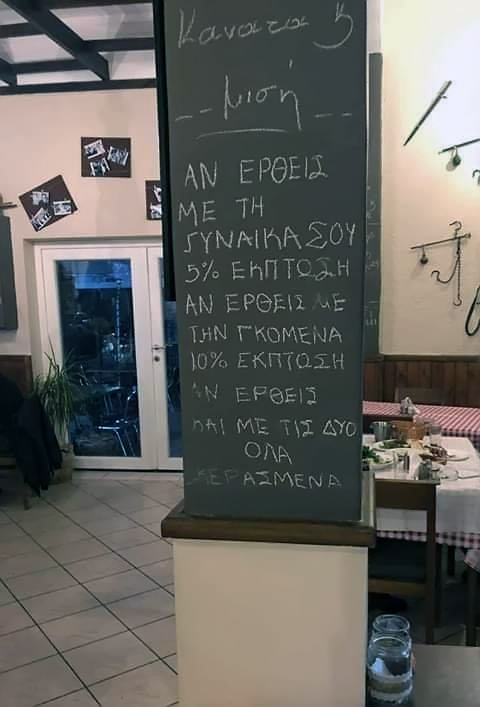 Κανατα 5
--Μισή--
ΑΝ ΕΡΘΕΙΣ
ΜΕ ΤΗ
ΓΥΝΑΙΚΑ ΣΟΥ
5% ΕΚΠΤΩΣΗ
ΑΝ ΕΡΘΕΙΣ ΜΕ
ΤΗΝ ΓΚΟΜΕΝΑ
10% ΕΚΠΤΩΣΗ
ΑΝ ΕΡΘΕΙΣ
ΚΑΙ ΜΕ ΤΙΣ ΔΥΟ
ΟΛΑ
ΚΕΡΑΣΜΕΝΑ